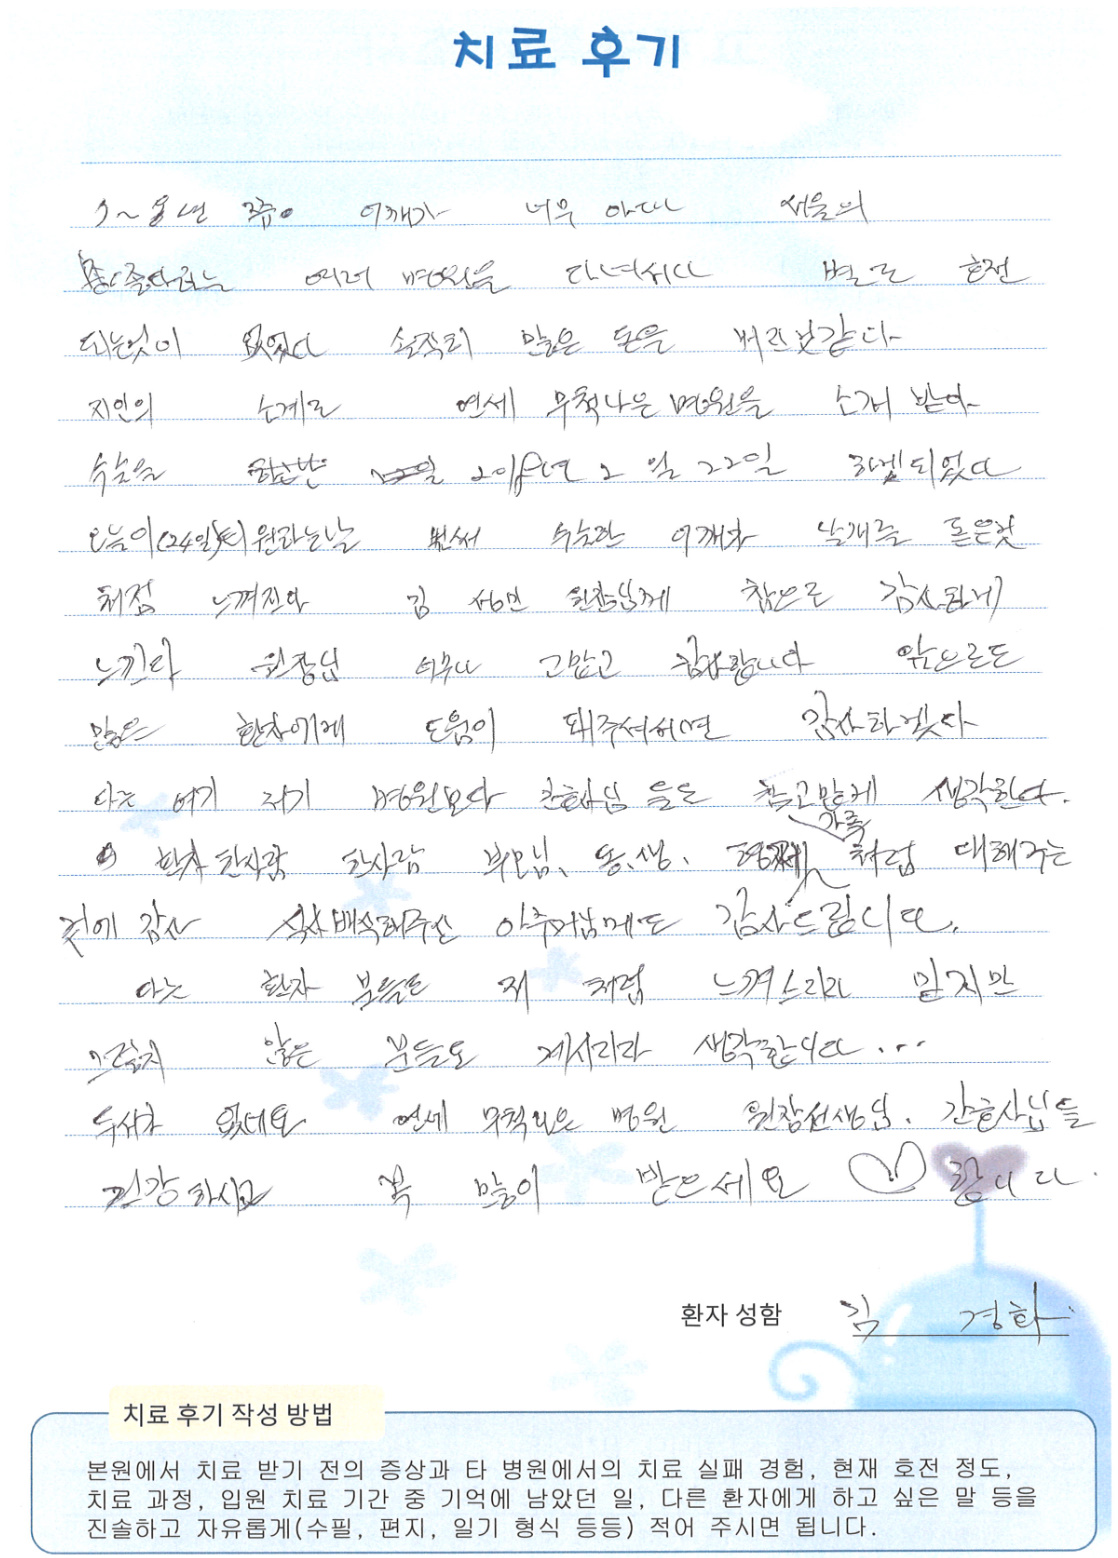 치료 후기
7~8년 쯤 어깨가 너무 아파 서울의
좋다라는 여러 병원을 다녀쉬다 별로 호전
되는것이 없었다 솔직히 많은 돈을 버린것같다
지인의 소개로 연세 무척나은병원을 소개 받아
수술을 2018년 2월 22일 하겟되었다
오늘이(24일)퇴원하는날 벌써 수술한 어깨가 날개를 돋은것
처점 느껴진다 김 성민 원장님께 참으로 감사하게
느낀다 원장님 너무나 고맙고 감사합니다 앞으로도
많은 환자에게 도움이 돼주셔쓰면 감사하겟다
나는 여기 저기 병원보다 간호사님 들도 참고맙게 생각한다.
환자 한사람 한사람 부모님, 동생, 형제 가족 처럼 대해주는
것에 감사 식사배식해주신 아주머님께도 감사드립니다.
나는 환자 분들도 저 처럼 느껴스리라 믿지만
그렇지 않은 분들도 계시리라 생각합니다...
두서가 없네요 연세 무척나은 병원 원장선생님. 간호사님들
건강하시고 복 많이 받으세요 ♡ 합니다.
환자 성함 김 경화
치료 후기 작성 방법
본원에서 치료 받기 전의 증상과 타 병원에서의 치료 실패 경험, 현재 호전 정도,
치료 과정, 입원 치료 기간 중 기억에 남았던 일, 다른 환자에게 하고 싶은 말 등을
진솔하고 자유롭게(수필, 편지, 일기 형식 등등) 적어 주시면 됩니다.